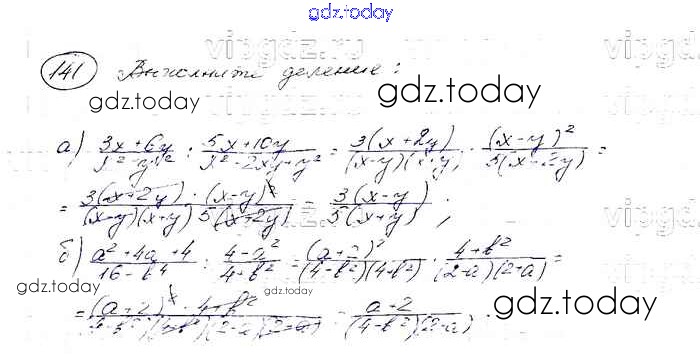 gdz.today
vipgdz.ru
141 Выполните деление:
gdz.today
gdz.today
а) (3x+6y)/(x²-y²) : (5x+10y)/(x²-2xy+y²) = 3(x+2y)/((x-y)(x+y)) · (x-y)²/(5(x+2y)) =
= (3(x+2y) · (x-y)²)/((x-y)(x+y) 5(x+2y)) = 3(x-y)/(5(x+y)) ;
б) (a²+4a+4)/(16-b⁴) : (4-a²)/(4+b²) = (a+2)²/((4-b²)(4+b²)) · (4+b²)/((2-a)(2+a)) =
gdz.today
gdz.today
= ((a+2)² · 4+b²)/((4-b²)(4+b²)(2-a)(2+a)) = (a+2)/((4-b²)(2-a)) .